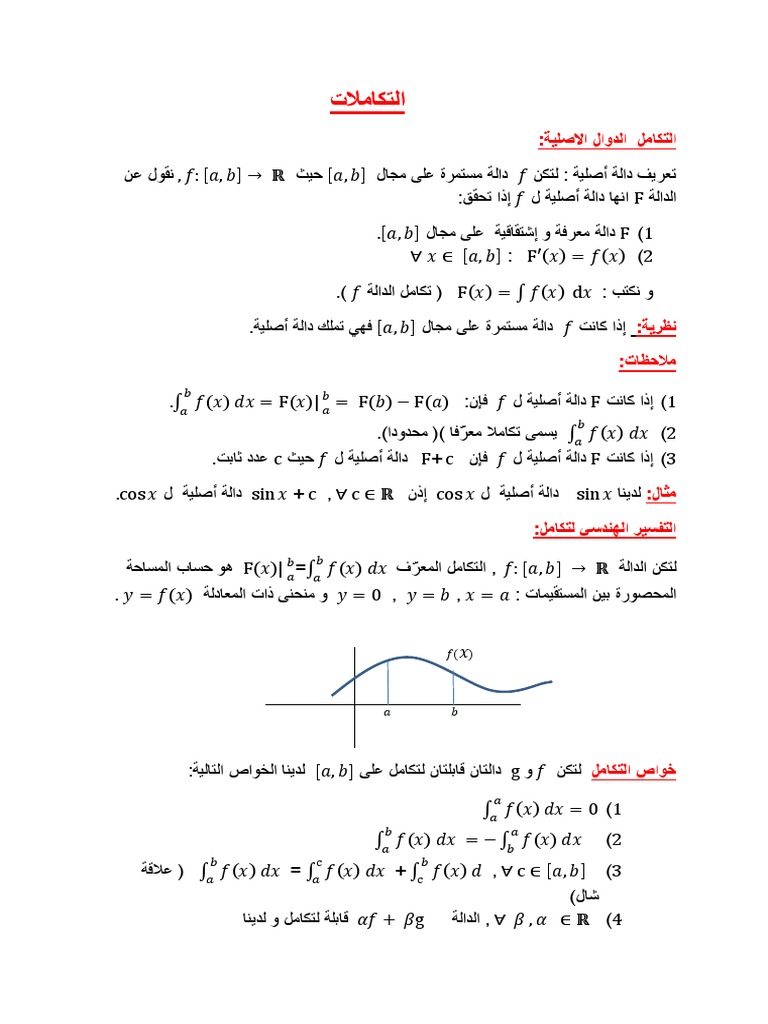 التكاملات
التكامل الدوال الاصلية:
تعريف دالة أصلية : لتكن f دالة مستمرة على مجال [a, b] حيث f: [a, b] → ℝ , نقول عن
الدالة F انها دالة أصلية ل f إذا تحقق:
1) F دالة معرفة و إشتقاقية على مجال [a, b].
2) ∀ x ∈ [a, b] : F′(x) = f(x)
و نكتب : F(x) = ∫ f(x) dx ( تكامل الدالة f ).
نظرية: إذا كانت f دالة مستمرة على مجال [a, b] فهي تملك دالة أصلية.
ملاحظات:
1) إذا كانت F دالة أصلية ل f فإن: ∫_a^b f(x) dx = F(x)|_a^b = F(b) − F(a).
2) ∫_a^b f(x) dx يسمى تكاملا معرّفا )( محدودا).
3) إذا كانت F دالة أصلية ل f فإن F+c دالة أصلية ل f حيث c عدد ثابت.
مثال: لدينا sin x دالة أصلية ل cos x إذن sin x + c , ∀ c ∈ ℝ دالة أصلية ل cos x.
التفسير الهندسي لتكامل:
لتكن الدالة f: [a, b] → ℝ , التكامل المعرّف F(x)|_a^b=∫_a^b f(x) dx هو حساب المساحة
المحصورة بين المستقيمات : y = 0 , y = b , x = a و منحنى ذات المعادلة y = f(x) .
f(x)
a b
خواص التكامل لتكن f و g دالتان قابلتان لتكامل على [a, b] لدينا الخواص التالية:
1) ∫_a^a f(x) dx = 0
2) ∫_a^b f(x) dx = − ∫_b^a f(x) dx
3) ∫_a^b f(x) dx = ∫_a^c f(x) dx + ∫_c^b f(x) d , ∀ c ∈ [a, b] ( علاقة
شال)
4) ∀ β , α ∈ ℝ , الدالة αf + βg قابلة لتكامل و لدينا